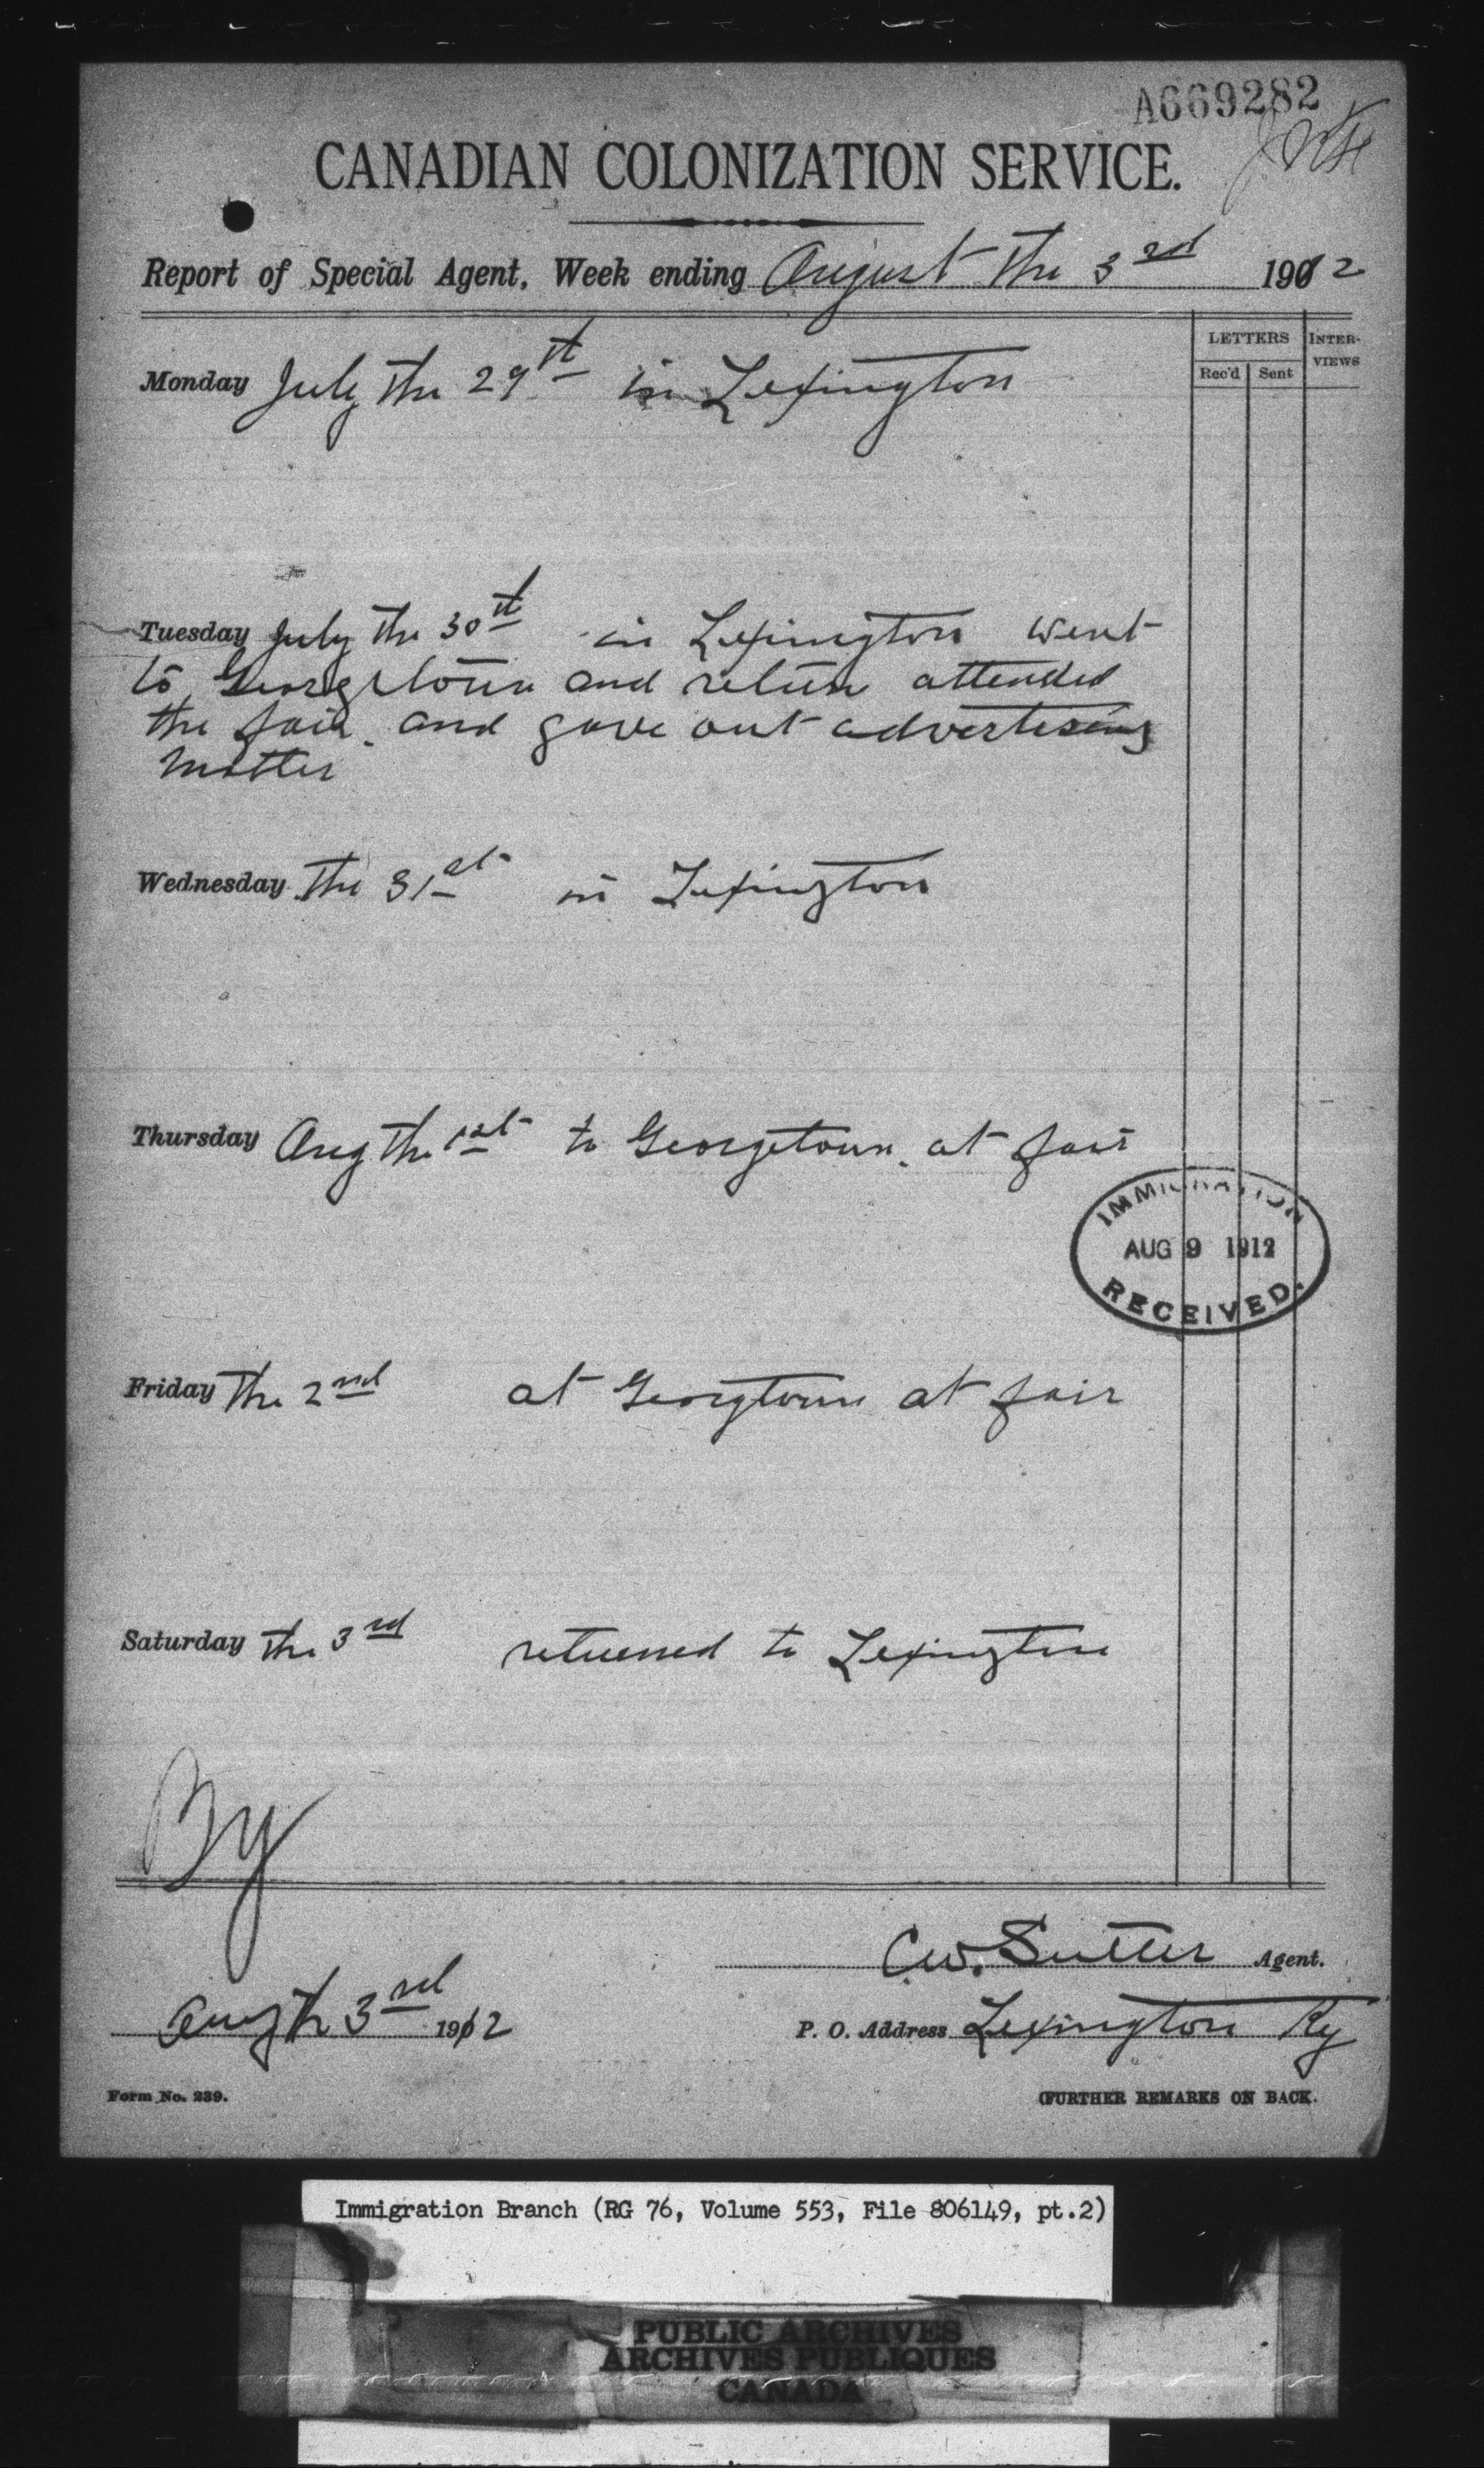 A669282
CANADIAN COLONIZATION SERVICE.
Report of Special Agent, Week ending August the 3rd 1912
LETTERS INTER-VIEWS
Rec'd Sent
Monday July the 29th in Lexington
Tuesday July the 30th in Lexington went
to Georgetown and return attended
the fair. and gave out advertising
matter
Wednesday the 31st in Lexington
Thursday Aug the 1st to Georgetown. at fair
IMMIGRATION
AUG 9 1912
RECEIVED.
Friday the 2nd at Georgtown at fair
Saturday the 3rd returned to Lexington
By
C.W. Sutter Agent.
Aug th 3rd 1912
P. O. Address Lexington Ky
Form No. 239.
(FURTHER REMARKS ON BACK.
Immigration Branch (RG 76, Volume 553, File 806149, pt.2)
PUBLIC ARCHIVES
ARCHIVES PUBLIQUES
CANADA